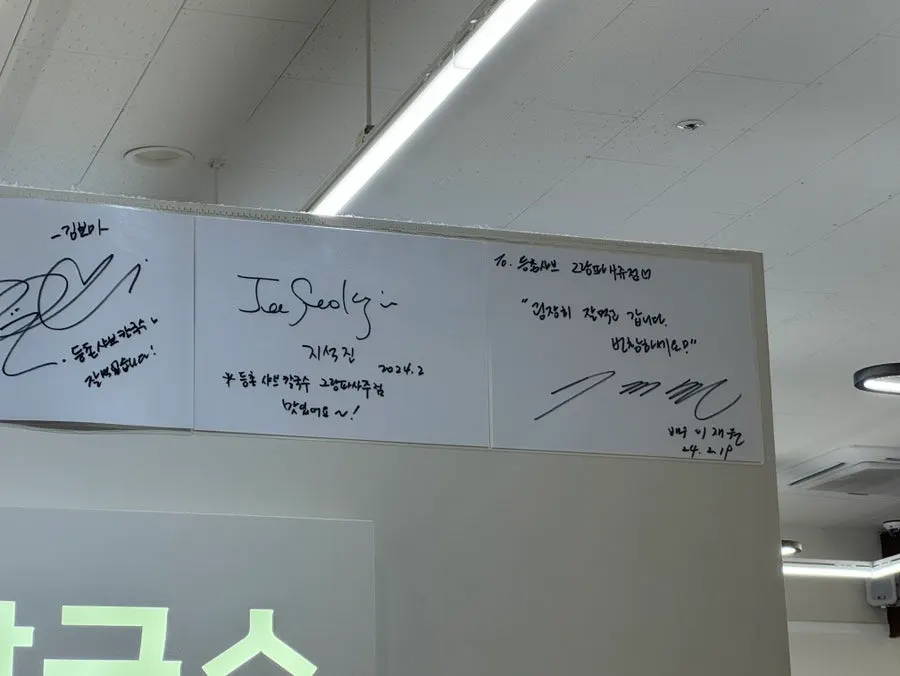 -김보마-
등촌샤브칼국수
잘먹었습니다!
Jee Seok Jin
지석진
2024.2
* 등촌 샤브 칼국수 그랑파사쥬점
맛있어요~!
To. 등촌샤브 그랑파사쥬점♡
"굉장히 잘먹고 갑니다.
번창하세요!"
배우 이재원
24.2.19
칼국수